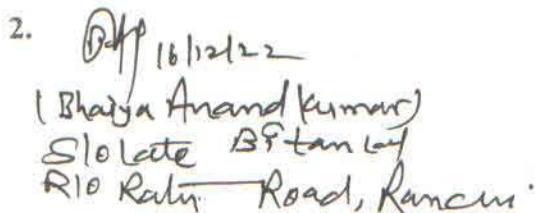 2.
16/12/22
(Bhaiya Anand Kumar)
S/o Late Bitan Lal
R/o Ratu Road, Ranchi.